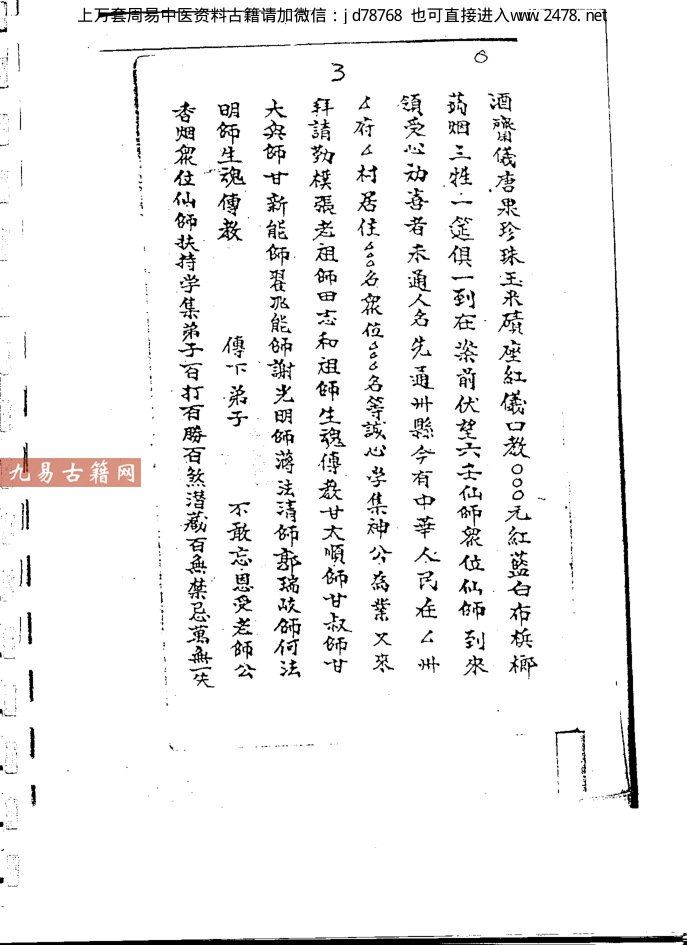 上万套周易中医资料古籍请加微信：jd78768 也可直接进入www.2478.net
3
酒齋儀唐果珍珠玉米𥒚座紅儀口教○○○元紅藍白布梹榔
蒟烟三牲一筵俱一到在桌前伏望六壬仙師眾位仙師到來
領受心动喜者未通人名先通州縣今有中華人民在厶州
厶府厶村居住厶厶厶名眾位厶厶厶名等誠心学集神公為業又來
拜請勤樸張老祖師田志和祖師生魂傳教甘大順師甘叔師甘
大兴師甘新能師翟兆能師謝光明師蔣法清師郭瑞岐師何法
明師生魂傳教 傳下弟子 不敢忘恩受老師公
香烟眾位仙師扶持学集弟子百打百勝百煞潜藏百無禁忌萬無一失
九易古籍网